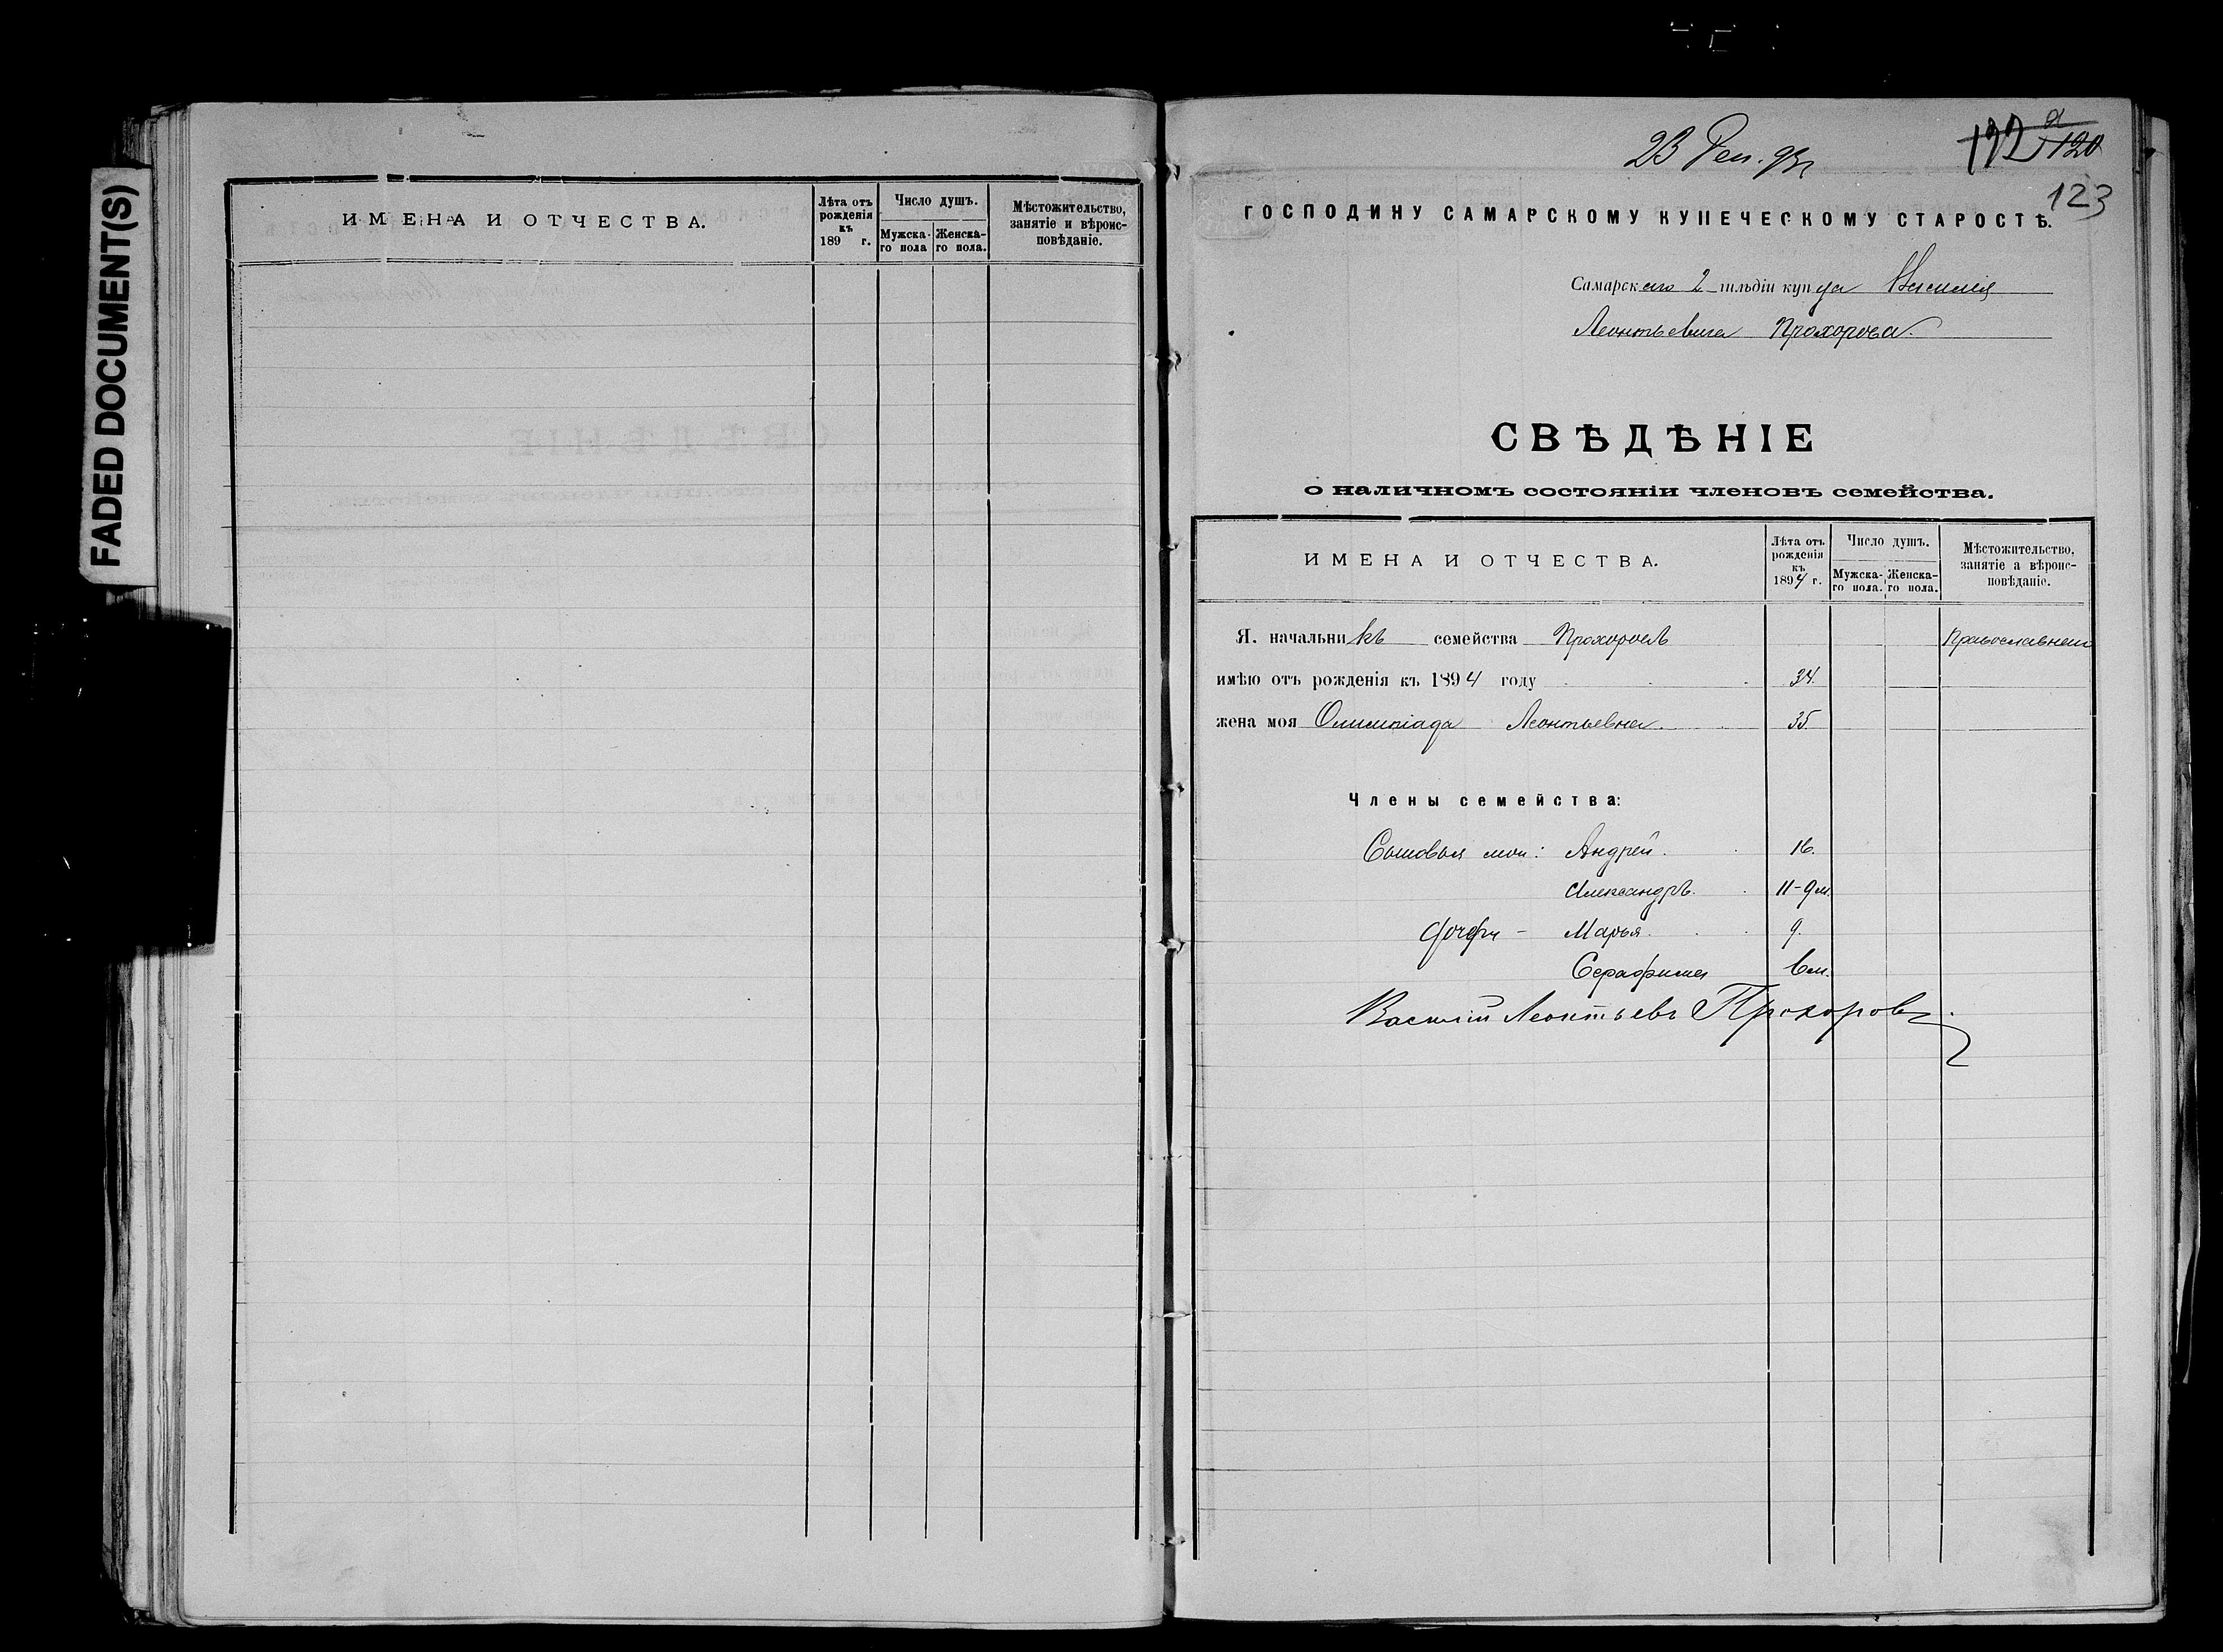 FADED DOCUMENT(S)
ИМЕНА И ОТЧЕСТВА.
Лѣта отъ рожденія къ 189 г.
Число душъ.
Мужска-го пола
Женска-го пола.
Мѣстожительство, занятіе и вѣроис-повѣданіе.
23 Дек. 93 г.
120
123
ГОСПОДИНУ САМАРСКОМУ КУПЕЧЕСКОМУ СТАРОСТѢ.
Самарскаго 2 гильдіи купца Василія
Леонтьевича Прохорова.
СВѢДѢНІЕ
о наличномъ состояніи членовъ семейства.
ИМЕНА И ОТЧЕСТВА.
Лѣта отъ рожденія къ 1894 г.
Число душъ.
Мужска-го пола.
Женска-го пола.
Мѣстожительство, занятіе а вѣроис-повѣданіе.
Я. начальникъ семейства Прохоровъ
имѣю отъ рожденія къ 1894 году 34.
жена моя Олимпіада Леонтьевна. 35.
Члены семейства:
Сыновья мои: Андрей. 16.
Александръ. 11-9 м.
дочери - Марья. 9.
Серафима 6 м.
Василій Леонтьевъ Прохоровъ.